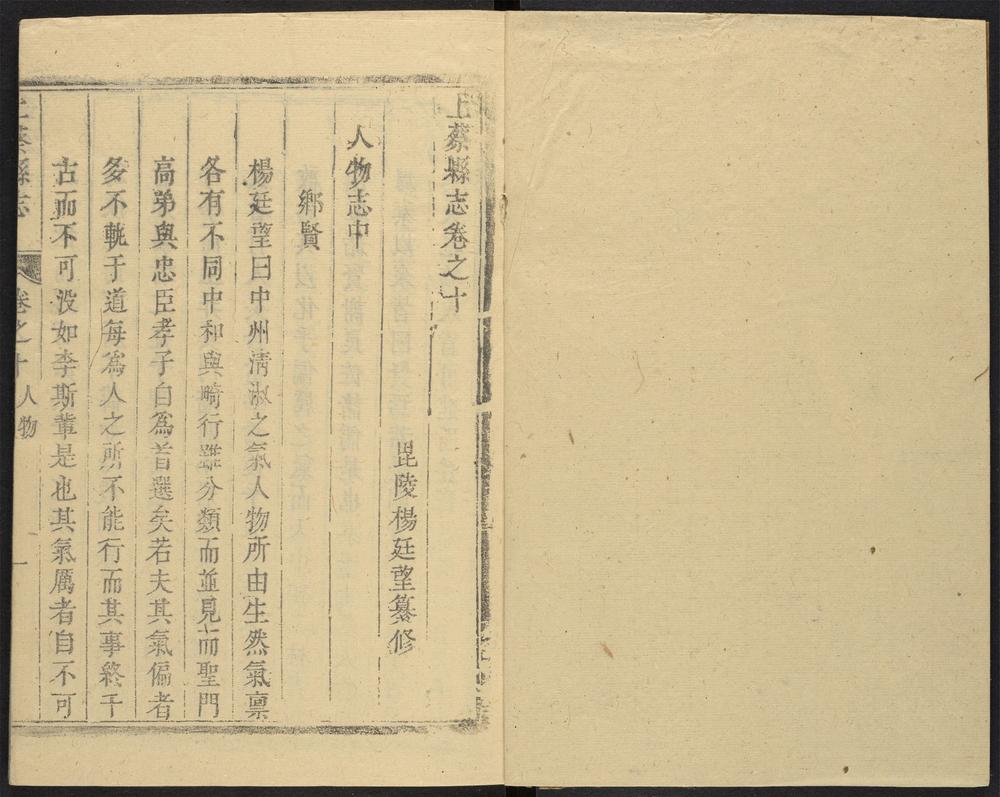 上蔡縣志卷之十
毘陵楊廷望纂修
人物志中
鄉賢
楊廷望曰中州淸淑之氣人物所由生然氣禀
各有不同中和與畸行雖分類而並見而聖門
高弟與忠臣孝子自爲首選矣若夫其氣偏者
多不軌于道每爲人之所不能行而其事終千
古而不可没如李斯輩是也其氣厲者自不可
上蔡縣志
卷之十
人物
一